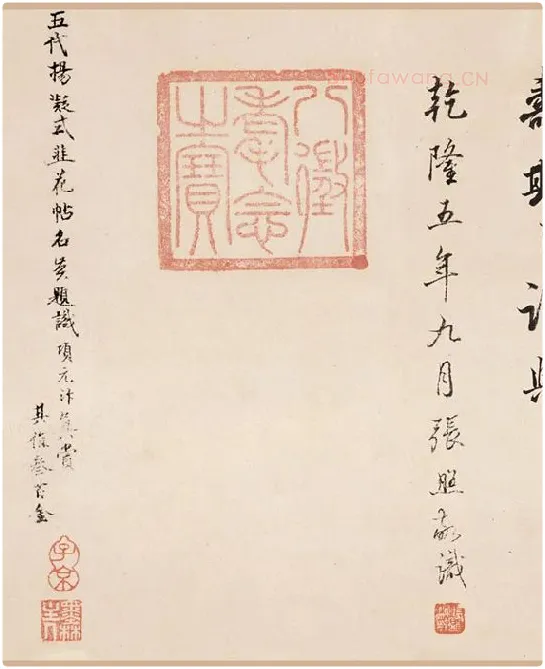 乾隆五年九月張照敬識
八徵耄念之寶
五代揚凝式韭花帖名賢題識項元汴真賞
其值叁百金
子京